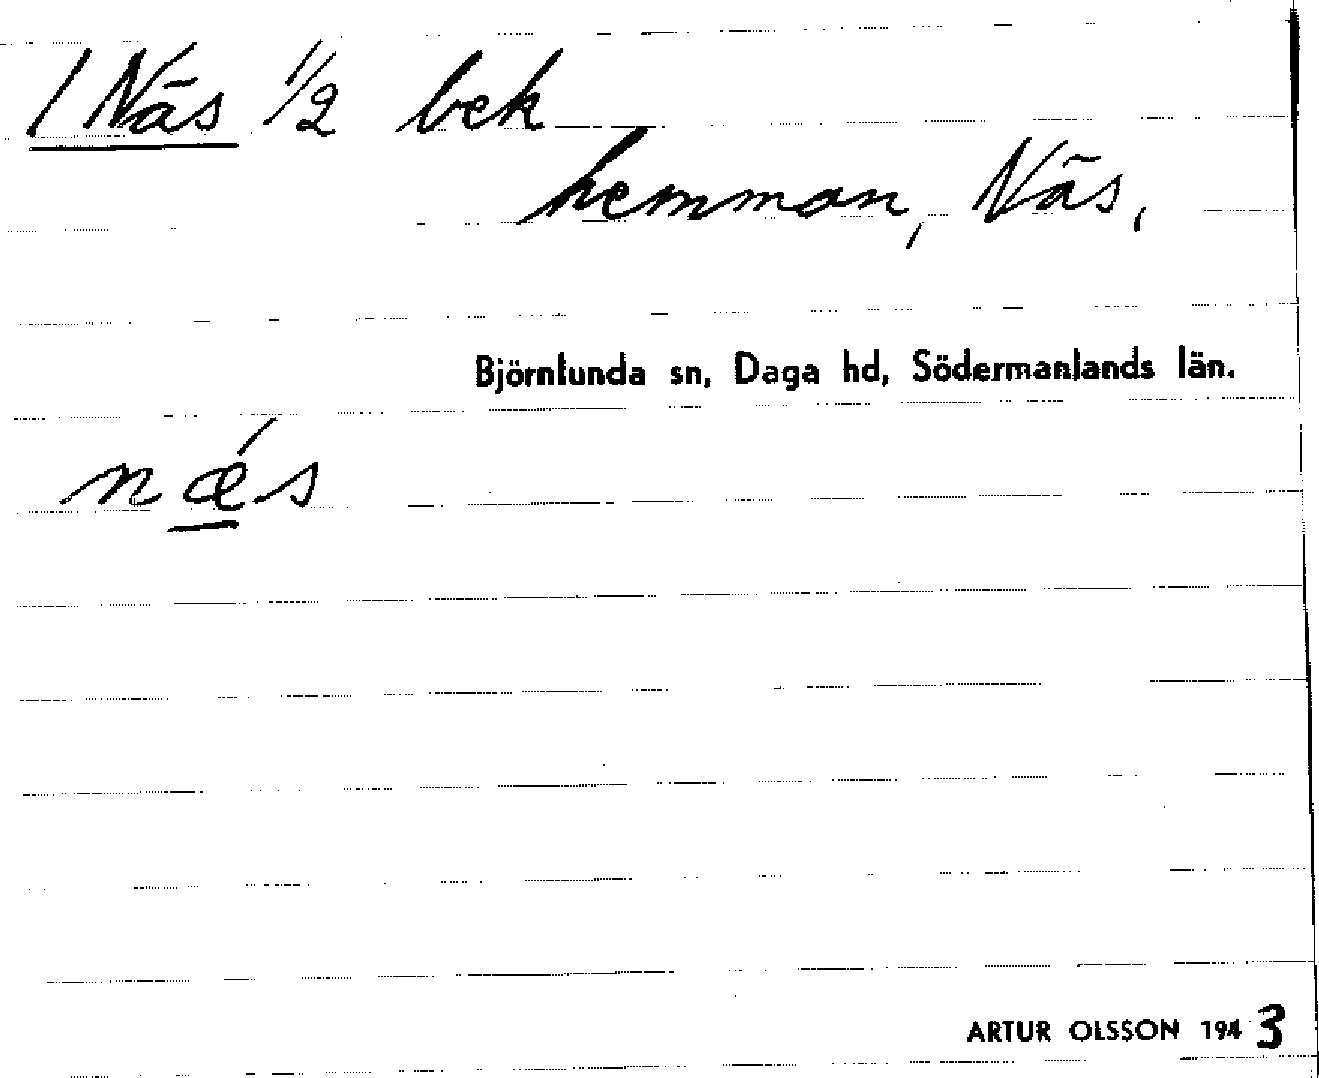 / Näs 1/2 bek
hemman, Näs,
Björnlunda sn, Daga hd, Södermanlands län.
næ´s
ARTUR OLSSON 1943